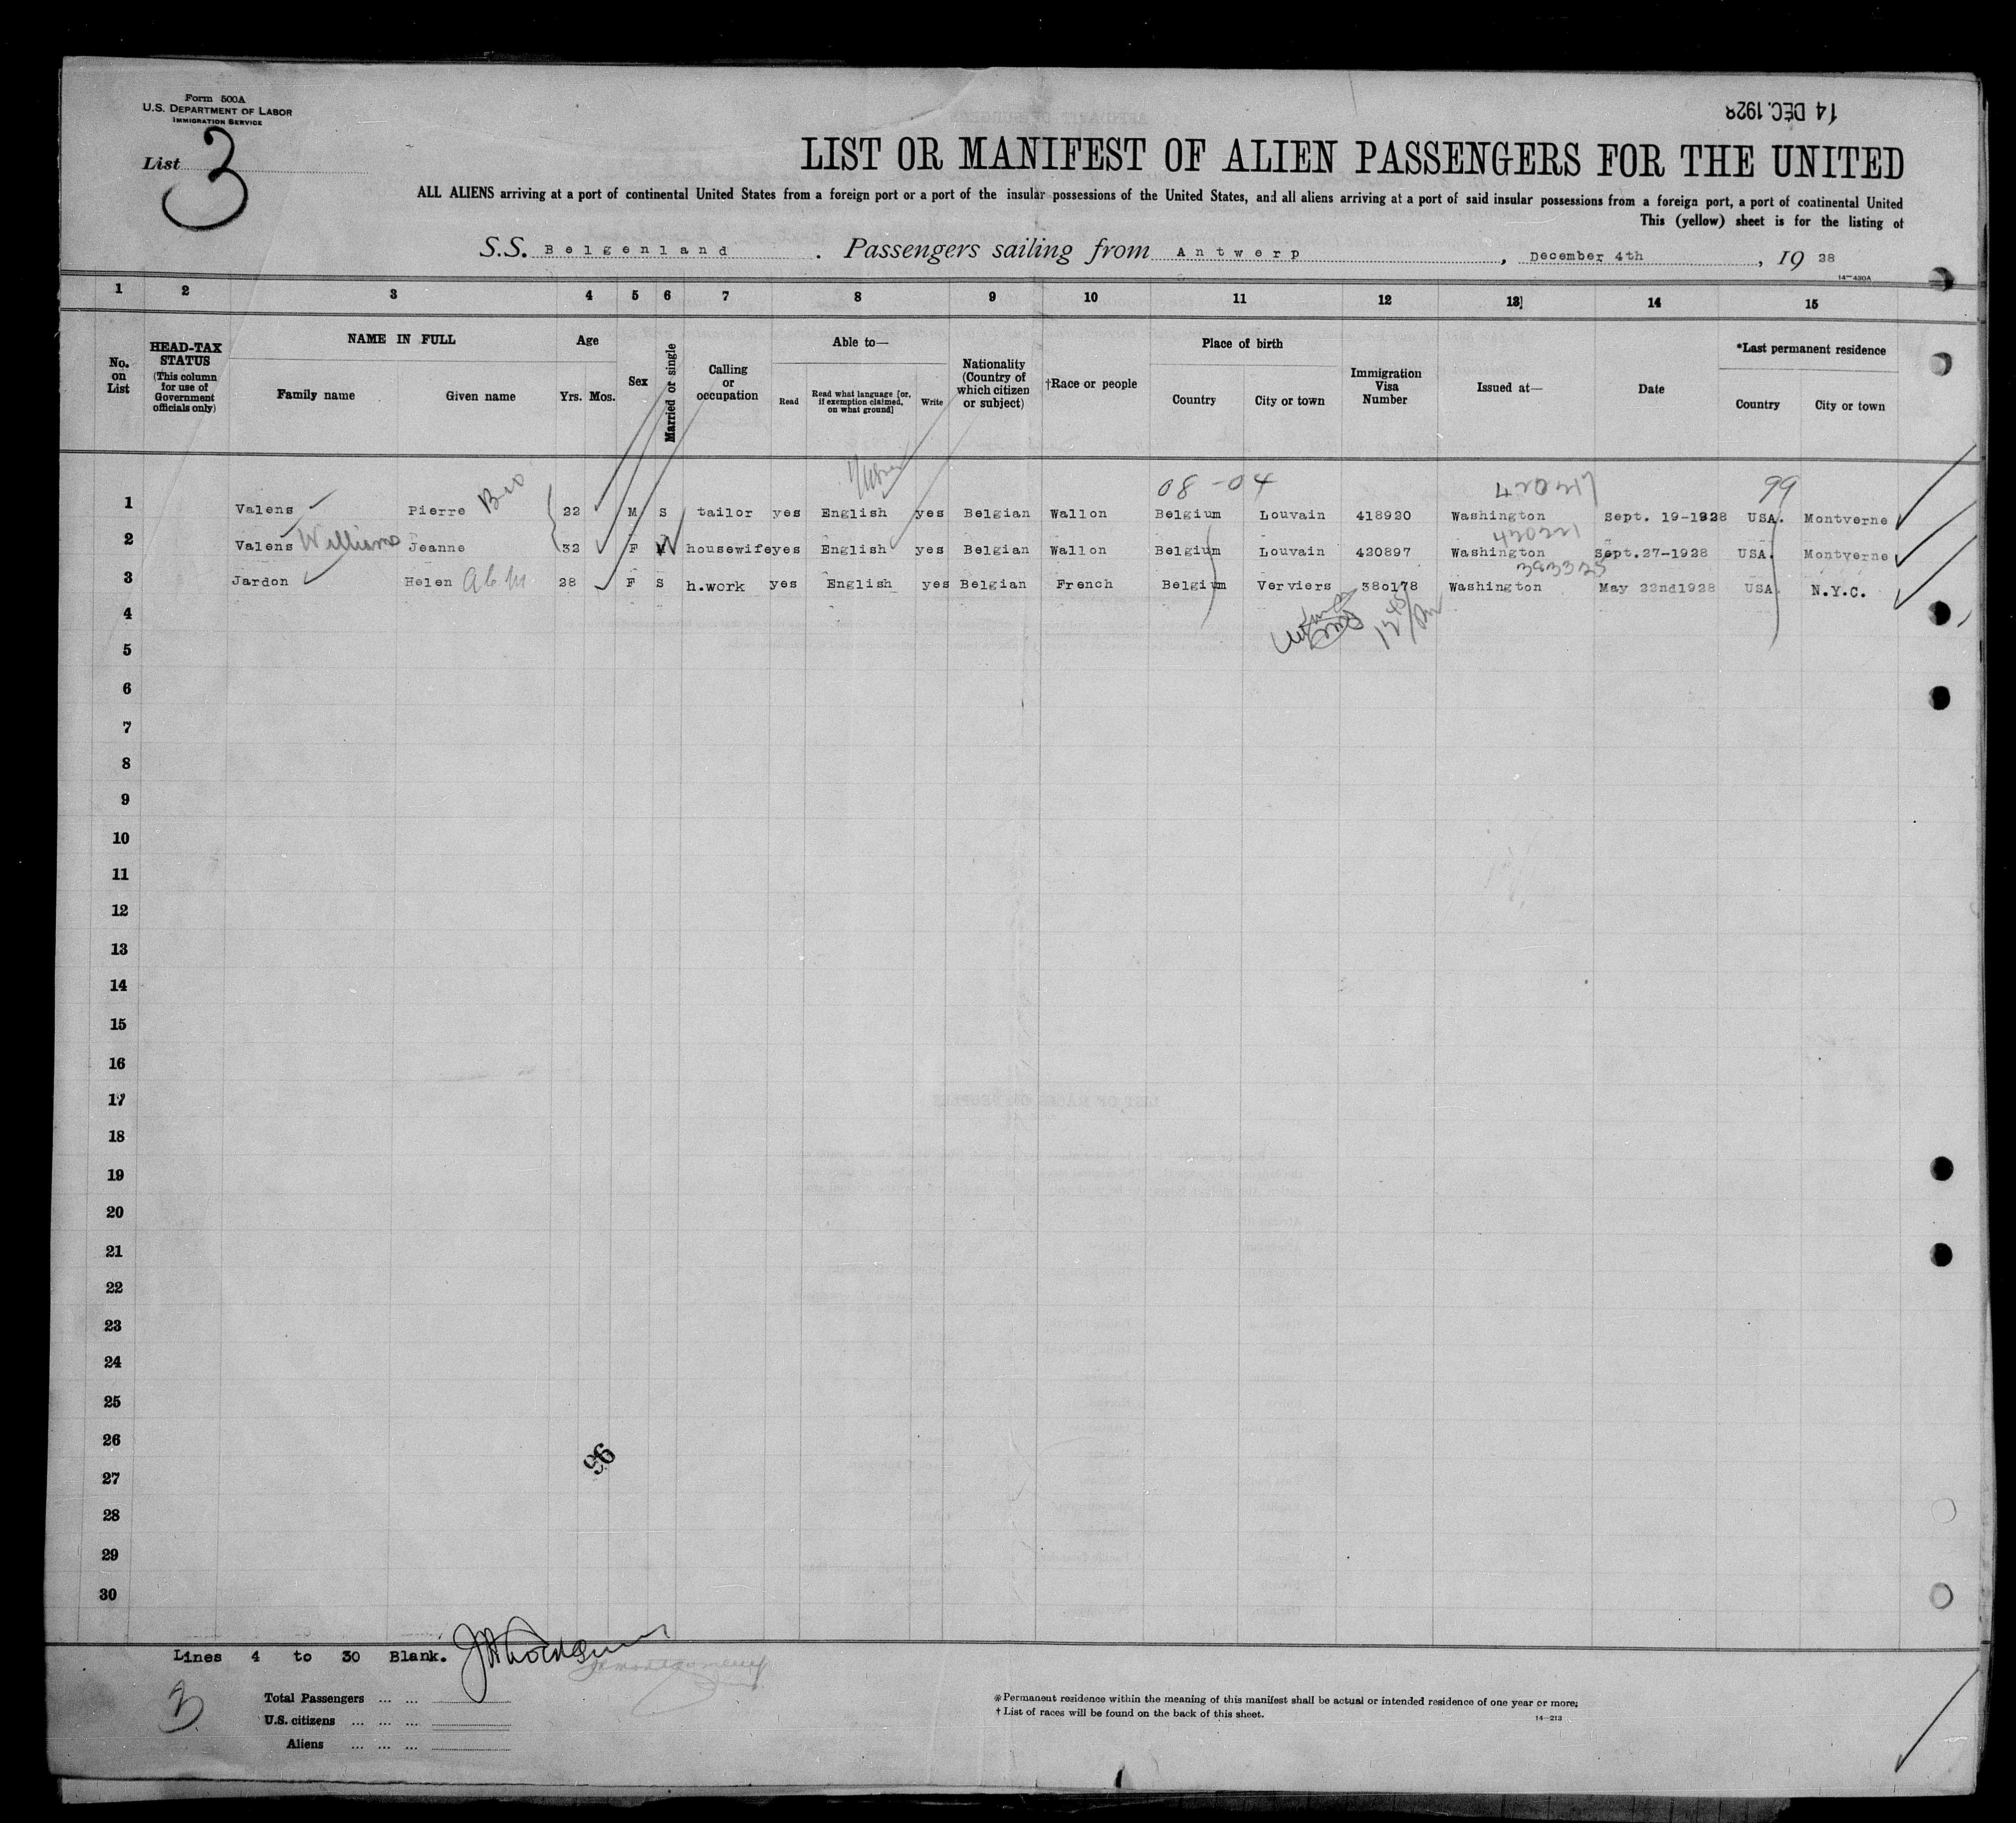 Form 500A
U.S. DEPARTMENT OF LABOR
IMMIGRATION SERVICE
14 DEC. 1928
List 3
LIST OR MANIFEST OF ALIEN PASSENGERS FOR THE UNITED
ALL ALIENS arriving at a port of continental United States from a foreign port or a port of the insular possessions of the United States, and all aliens arriving at a port of said insular possessions from a foreign port, a port of continental United
This (yellow) sheet is for the listing of
S.S. Belgenland . Passengers sailing from Antwerp , December 4th , 19 28
14—430A
1 2 3 4 5 6 7 8 9 10 11 12 13] 14 15
No. on List
HEAD-TAX STATUS (This column for use of Government officials only)
NAME IN FULL
Family name Given name
Age
Yrs. Mos.
Sex
Married or single
Calling or occupation
Able to—
Read
Read what language [or, if exemption claimed, on what ground]
Write
Nationality (Country of which citizen or subject)
†Race or people
Place of birth
Country City or town
Immigration Visa Number
Issued at—
Date
*Last permanent residence
Country City or town
08-04 99
1 Valens Pierre 22 M S tailor yes English yes Belgian Wallon Belgium Louvain 418920 Washington Sept. 19-1928 USA. Montverne
420221
2 Valens Williams Jeanne 32 F housewife yes English yes Belgian Wallon Belgium Louvain 420897 Washington Sept.27-1928 USA. Montverne
393325
3 Jardon Helen 28 F S h.work yes English yes Belgian French Belgium Verviers 380178 Washington May 22nd1928 USA N.Y.C.
4
5
6
7
8
9
10
11
12
13
14
15
16
17
18
19
20
21
22
23
24
25
26
96
27
28
29
30
Lines 4 to 30 Blank.
3
Total Passengers ... ...
U.S. citizens ... ... ...
Aliens ... ... ...
*Permanent residence within the meaning of this manifest shall be actual or intended residence of one year or more;
† List of races will be found on the back of this sheet.
14—213